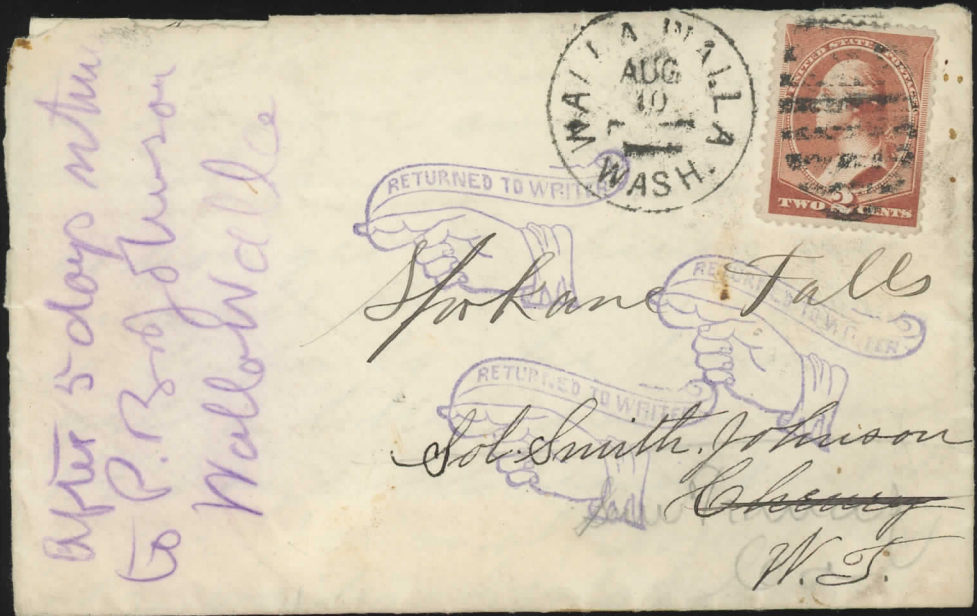 After 5 days return
to P. B. Johnson
Walla Walla
WALLA WALLA
AUG
10
WASH.
UNITED STATES POSTAGE
2
TWO CENTS
RETURNED TO WRITER
Spokane Falls
RETURNED TO WRITER
RETURNED TO WRITER
Sol. Smith. Johnson
Cheney
W. T.